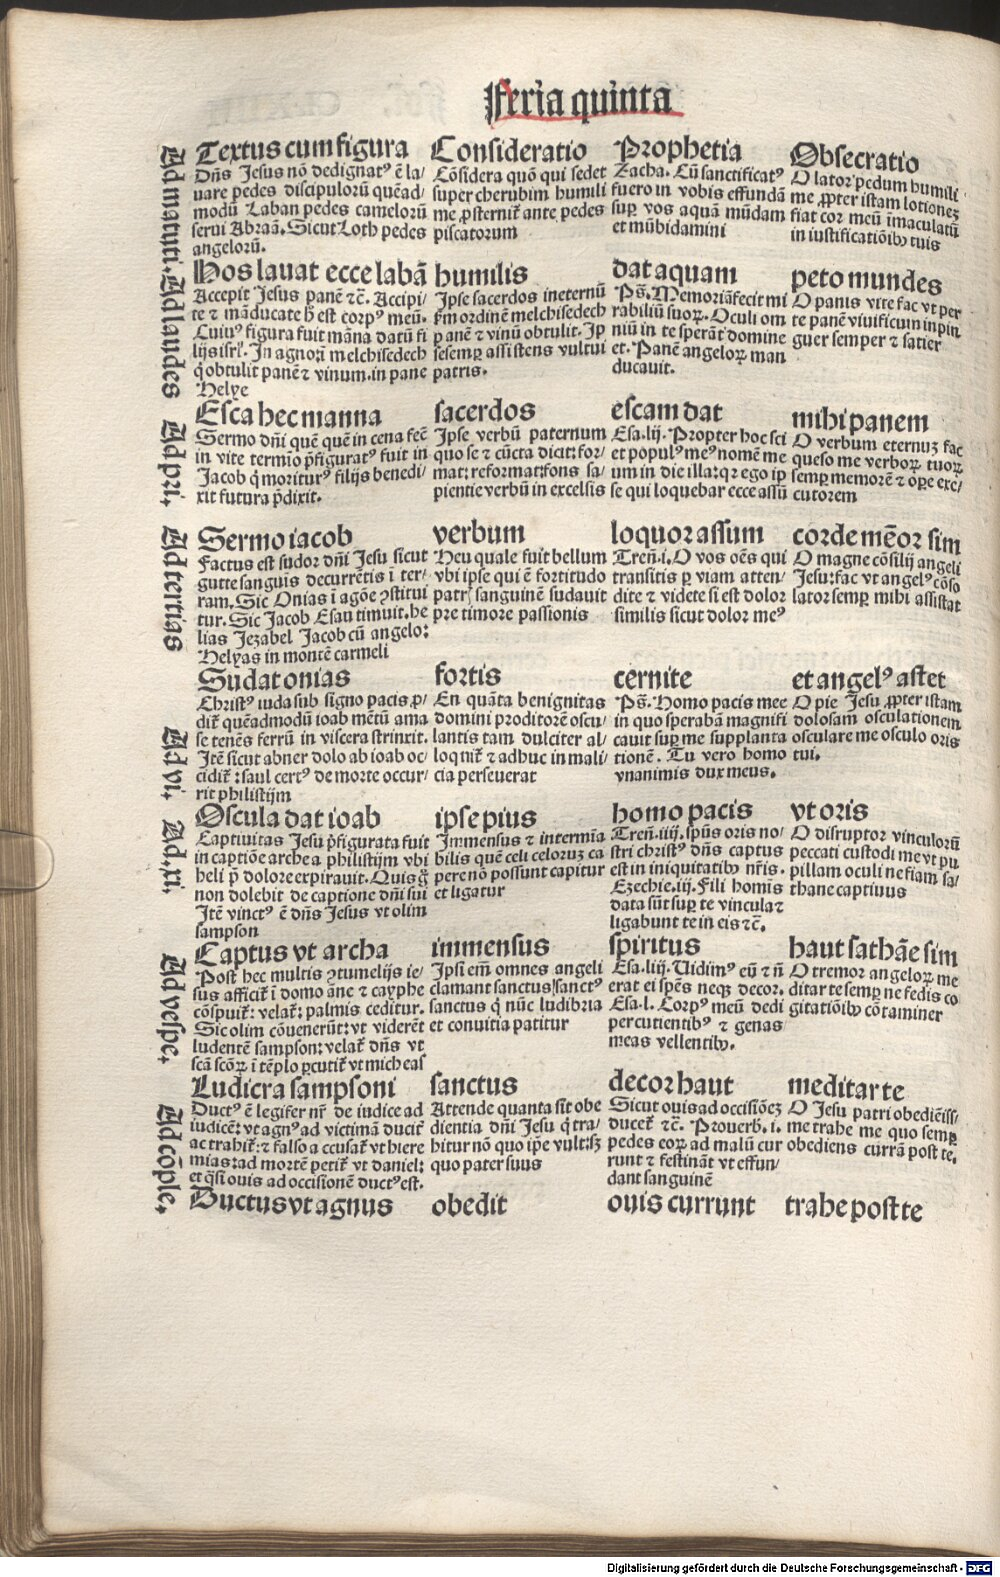 Feria quinta
Textus cum figura
Dñs Jesus nõ dedignatꝰ ẽ la⸗
uare pedes discipulorũ quẽad⸗
modũ Laban pedes camelorũ
serui Abraã. Sicut Loth pedes
angelorũ.
Consideratio
Cõsidera quõ qui sedet
super cherubim humili
me ꝓsternit̃ ante pedes
piscatorum
Prophetia
Zacha. Cũ sanctificatꝰ
fuero in vobis effundã
suꝑ vos aquã mũdam
et mũbidamini
Obsecratio
O lator pedum humili
me ꝓpter istam lotionez
fiat cor meũ ĩmaculatũ
in iustificatiõibꝫ tuis
Ad matuti.
Hos lauat ecce labã
humilis
dat aquam
peto mundes
Accepit Jesus panẽ ⁊c̃. Accipi⸗
te ⁊ mãducate h̃ est corpꝰ meũ.
Cuiꝰ figura fuit mãna datũ fi
lijs isrl̃. In agno: ⁊ melchisedech
q̃ obtulit panẽ ⁊ vinum. in pane
Helye
Ipse sacerdos in eternũ
ẜm ordinẽ melchisedech
panẽ ⁊ vinũ obtulit. Ip
se semꝑ assistens vultui
patris.
Ps̃. Memoriã fecit mi
rabiliũ suoꝝ. Oculi om
niũ in te sperãt domine
et. Panẽ angeloꝝ man
ducauit.
O panis vite fac vt per
te panẽ viuificum in pin
guer semper ⁊ satier
Ad laudes
Esca hec manna
sacerdos
escam dat
mihi panem
Sermo dñi quẽ quẽ in cena fec̃
in vite termĩo p̃figuratꝰ fuit in
Jacob q̃ moriturꝰ filijs benedi⸗
xit futura p̃dixit.
Ipse verbũ paternum
quo se ⁊ cũcta dicit: for⸗
mat: reformat: fons sa⸗
pientie verbũ in excelsis
Esa. lij. Propter hoc sci
et populꝰ meꝰ nomẽ me
um in die illa: qꝛ ego ip
se qui loquebar ecce assũ
O verbum eternuz fac
queso me verboꝝ tuoꝝ
semꝑ memorẽ ⁊ oꝑe exe⸗
cutorem
Ad pri.
Sermo iacob
verbum
loquor assum
corde mẽor sim
Factus est sudor dñi Jesu sicut
gutte sanguĩs decurrẽtis ĩ ter⸗
ram. Sic Onias ĩ agõe ꝯstitui
tur. Sic Jacob Esau timuit. he
lias Jezabel Jacob cũ angelo:
Helyas in montẽ carmeli
Heu quale fuit bellum
vbi ipse qui ẽ fortitudo
patrꝭ sanguinẽ sudauit
pre timore passionis
Tren̄. i. O vos oẽs qui
transitis ꝑ viam atten⸗
dite ⁊ videte si est dolor
similis sicut dolor meꝰ
O magne cõsilij angeli
Jesu: fac vt angelꝰ cõso
lator semꝑ mihi assistat
Ad tertias
Sudat onias
fortis
cernite
et angelꝰ astet
Christꝰ iuda sub signo pacis ꝓ⸗
dit̃ quẽadmodũ ioab mẽtũ ama
se tenẽs ferrũ in viscera strinxit.
Itẽ sicut abner dolo ab ioab oc⸗
cidit̃: saul certꝰ de morte occur⸗
rit philistijm
En quãta benignitas
domini proditorẽ oscu⸗
lantis tam dulciter al⸗
loqnit̃ ⁊ adhuc in mali⸗
cia perseuerat
Ps̃. Homo pacis mee
in quo sperabã magnifi
cauit suꝑ me supplanta
tionẽ. Tu vero homo
vnanimis dux meus.
O pie Jesu ꝓpter istam
dolosam osculationem
osculare me osculo oris
tui.
Ad vi.
Oscula dat ioab
ipse pius
homo pacis
vt oris
Captiuitas Jesu p̃figurata fuit
in captiõe arche a philistijm vbi
heli p̃ dolore expirauit. Quis g̃
non dolebit de captione dñi sui
Itẽ vinctꝰ ẽ dñs Jesus vt olim
sampson
Immensus ⁊ intermĩa
bilis quẽ celi celoruz ca
pere nõ possunt capitur
et ligatur
Tren̄. iiij. sp̃us oris no⸗
stri christꝰ dñs captus
est in iniquitatibꝫ nr̃is.
Ezechie. iij. Fili homĩs
data sũt suꝑ te vincula ⁊
ligabunt te in eis ⁊c̃.
O disruptor vinculorũ
peccati custodi me vt pu
pillam oculi ne fiam sa⸗
thane captiuus
Ad. xi.
Captus vt archa
immensus
spiritus
haut sathãe sim
Post hec multis ꝯtumelijs ie⸗
sus afficit̃ ĩ domo ãne ⁊ cayphe
cõspuit̃: velat̃: palmis ceditur.
Sic olim cõuenerũt: vt viderẽt
ludentẽ sampson: velat̃ dñs vt
scã scõꝝ ĩ tẽplo ꝑcutit̃ vt micheas
Ipsi em̃ omnes angeli
clamant sanctus! sanctꝰ
sanctus q̃ nũc ludibria
et conuitia patitur
Esa. liij. Uidimꝰ eũ ⁊ ñ
erat ei sp̃es neqꝫ decor.
Esa. l. Corpꝰ meũ dedi
percutientibꝰ ⁊ genas
meas vellentibꝫ.
O tremor angeloꝝ me
ditar te semꝑ ne fedis co
gitatiõibꝫ cõtaminer
Ad vespe.
Ludicra sampsoni
sanctus
decor haut
meditar te
Ductꝰ ẽ legifer nr̃ de iudice ad
iudicẽ: vt agnꝰ ad victimã ducit̃
ac trahit̃: ⁊ falso accusat̃ vt hiere
mias: ad mortẽ petit̃ vt daniel:
et q̃si ouis ad occisionẽ ductꝰ est.
Attende quanta sit obe
dientia dñi Jesu q̃ tra⸗
hitur nõ quo ip̃e vult: sꝫ
quo pater suus
Sicut ouis ad occisiõez
ducet̃ ⁊c̃. Prouerb. i.
pedes eoꝝ ad malũ cur
runt ⁊ festinãt vt effun⸗
dant sanguinẽ
O Jesu patri obediẽtiss⸗
me trahe me quo semꝑ
obediens currã post te.
Ad cõple.
Ductus vt agnus
obedit
ouis currunt
trahe post te
Digitalisierung gefördert durch die Deutsche Forschungsgemeinschaft - DFG